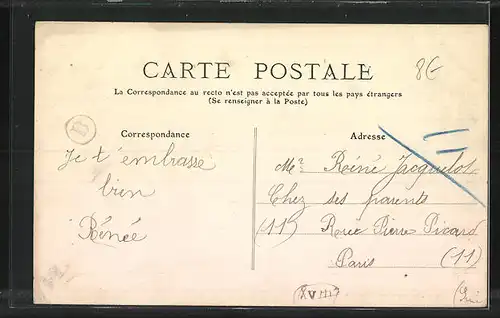 8E
CARTE POSTALE
La Correspondance au recto n'est pas acceptée par tous les pays étrangers
(Se renseigner à la Poste)
Correspondance
Je t'embrasse
bien
Rénée
Adresse
Mr Réné Jacquelot
Chez ses parents
(11) Rue Pierre Picard
Paris (11)
XVIII